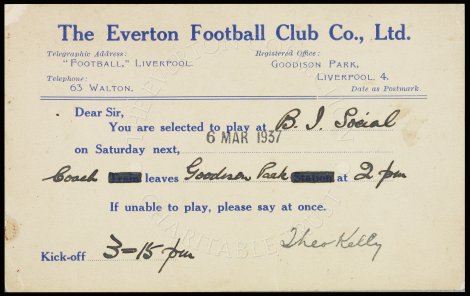 The Everton Football Club Co., Ltd.
Telegraphic Address: Registered Office:
"FOOTBALL," LIVERPOOL. GOODISON PARK,
Telephone: LIVERPOOL, 4.
63 WALTON. Date as Postmark
Dear Sir,
You are selected to play at B. I. Social
on Saturday next, 6 MAR 1937
Coach Train leaves Goodison Park Station at 2 pm
If unable to play, please say at once.
Theo Kelly
Kick-off 3-15 pm